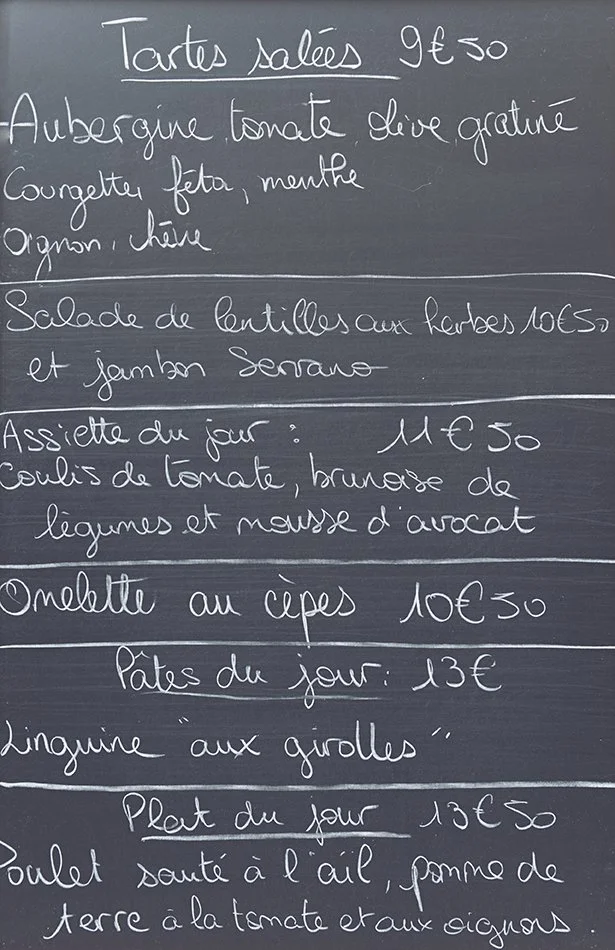 Tartes salées 9€50
-Aubergine, tomate, olive, gratiné
Courgette, féta, menthe
Oignon, chèvre
Salade de lentilles aux herbes 10€50
et jambon Serrano
Assiette du jour : 11€50
Coulis de tomate, brunoise de
légumes et mousse d'avocat
Omelette au cèpes 10€50
Pâtes du jour : 13€
Linguine "aux girolles"
Plat du jour 13€50
Poulet sauté à l'ail, pomme de
terre à la tomate et aux oignons.